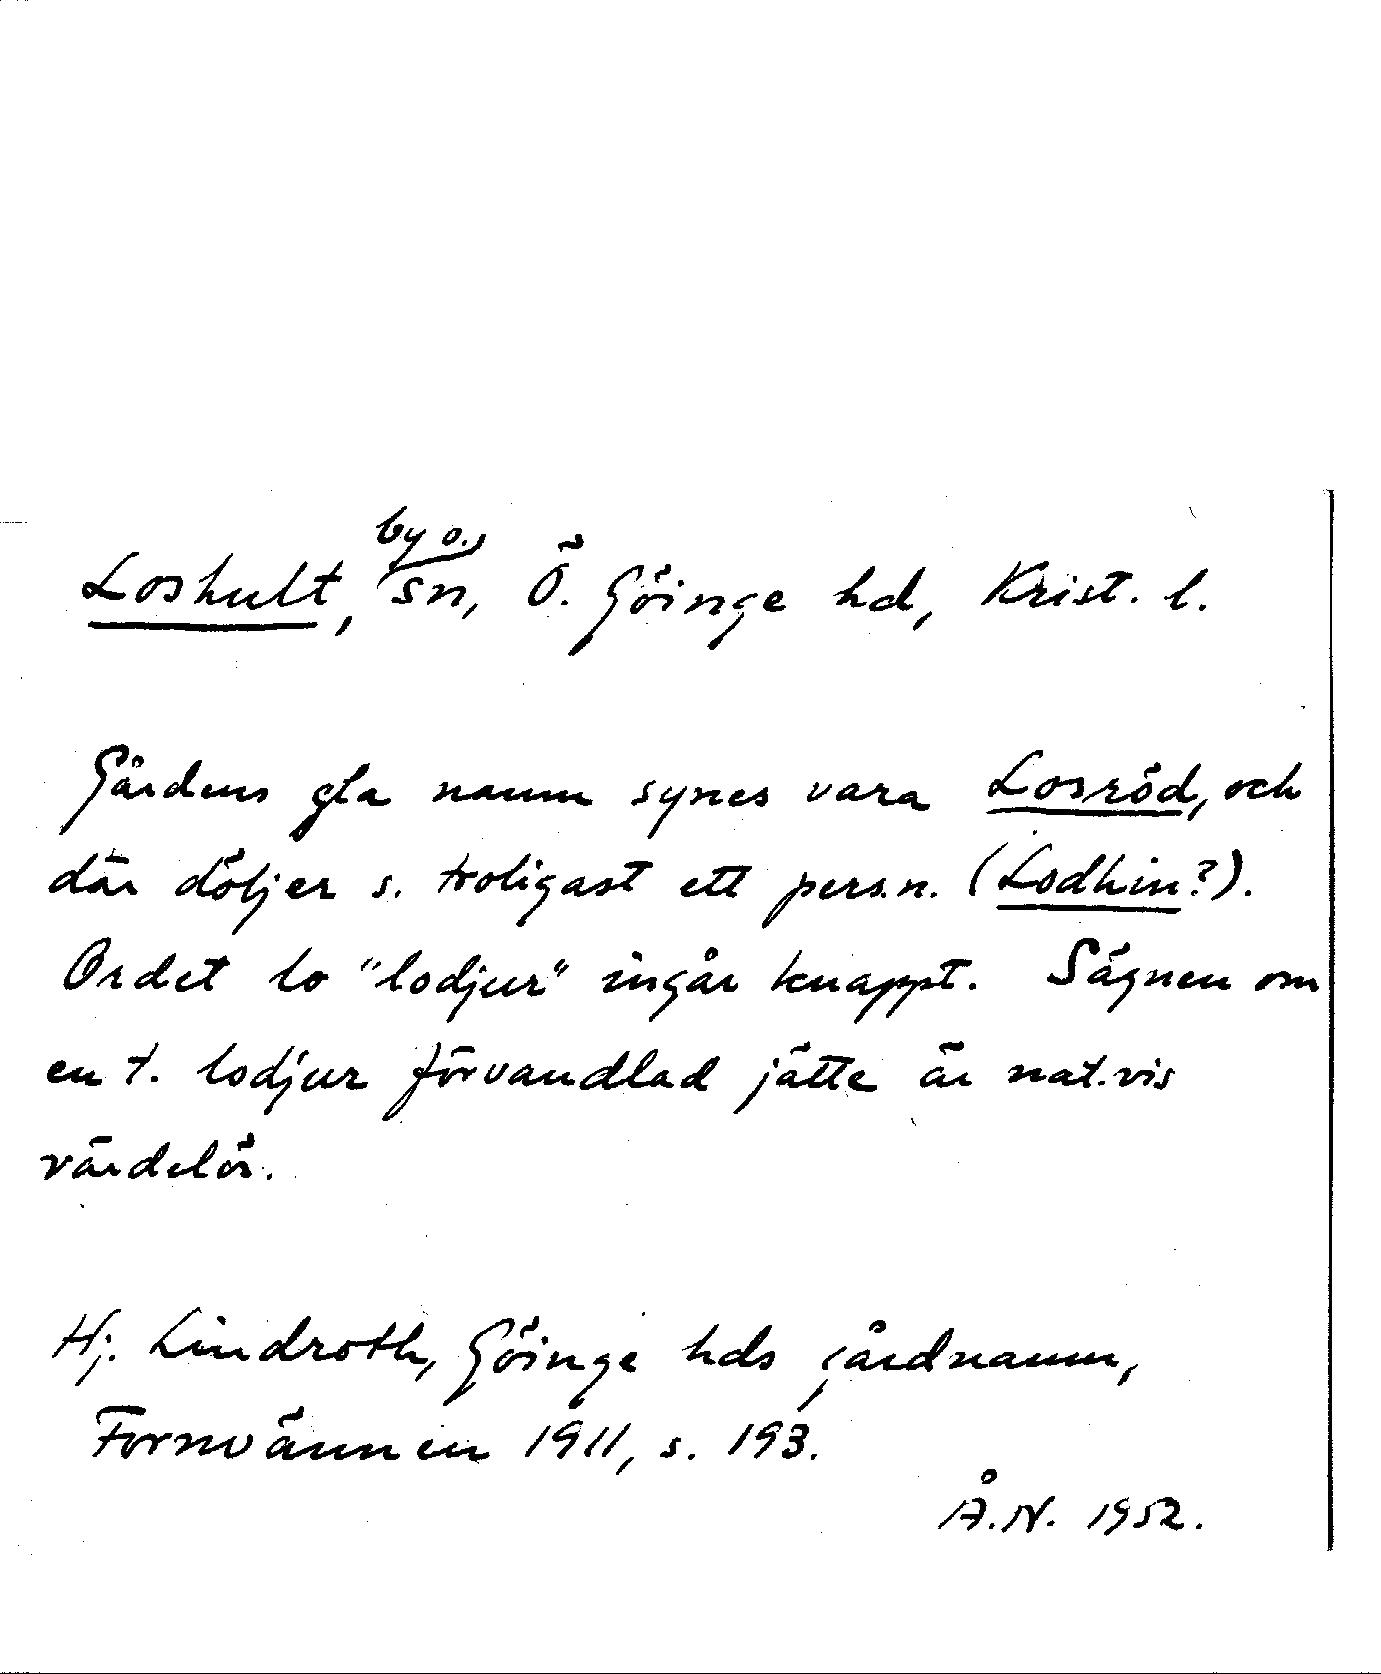 Loshult, by o. sn, Ö. Göinge hd, Krist. l.
Gårdens gla namn synes vara Losröd, och
där döljer s. troligast ett persn. (Lodhin?).
Ordet lo "lodjur" ingår knappt. Sägnen om
en t. lodjur förvandlad jätte är nat.vis
värdelös.
Hj. Lindroth, Göinge hds gårdnamn,
Fornvännen 1911, s. 193.
Å.N. 1952.